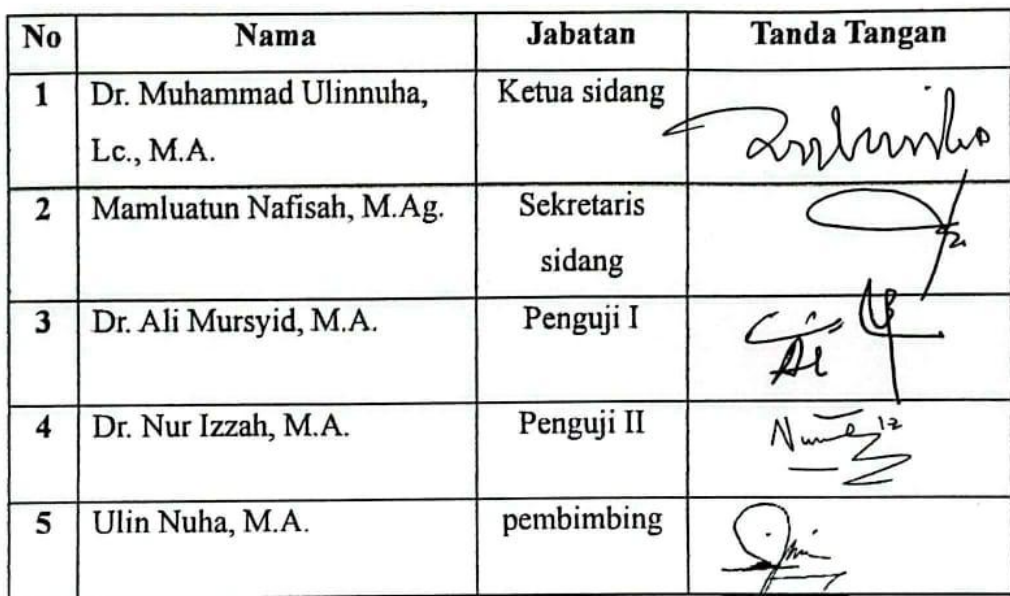 No Nama Jabatan Tanda Tangan
1 Dr. Muhammad Ulinnuha, Ketua sidang
Lc., M.A.
2 Mamluatun Nafisah, M.Ag. Sekretaris
sidang
3 Dr. Ali Mursyid, M.A. Penguji I
4 Dr. Nur Izzah, M.A. Penguji II
5 Ulin Nuha, M.A. pembimbing